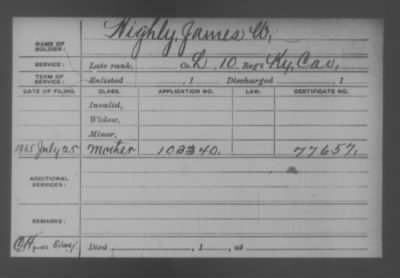 Highly, James W,
NAME OF SOLDIER:
SERVICE: Late rank, Co. L, 10 Reg't Ky, Cav,
TERM OF SERVICE: Enlisted , 1 Discharged , 1
DATE OF FILING. CLASS. APPLICATION NO. LAW. CERTIFICATE NO.
Invalid,
Widow,
Minor,
1865 July 25 Mother 103340. 77657.
ADDITIONAL SERVICES:
REMARKS:
Died , 1 , at